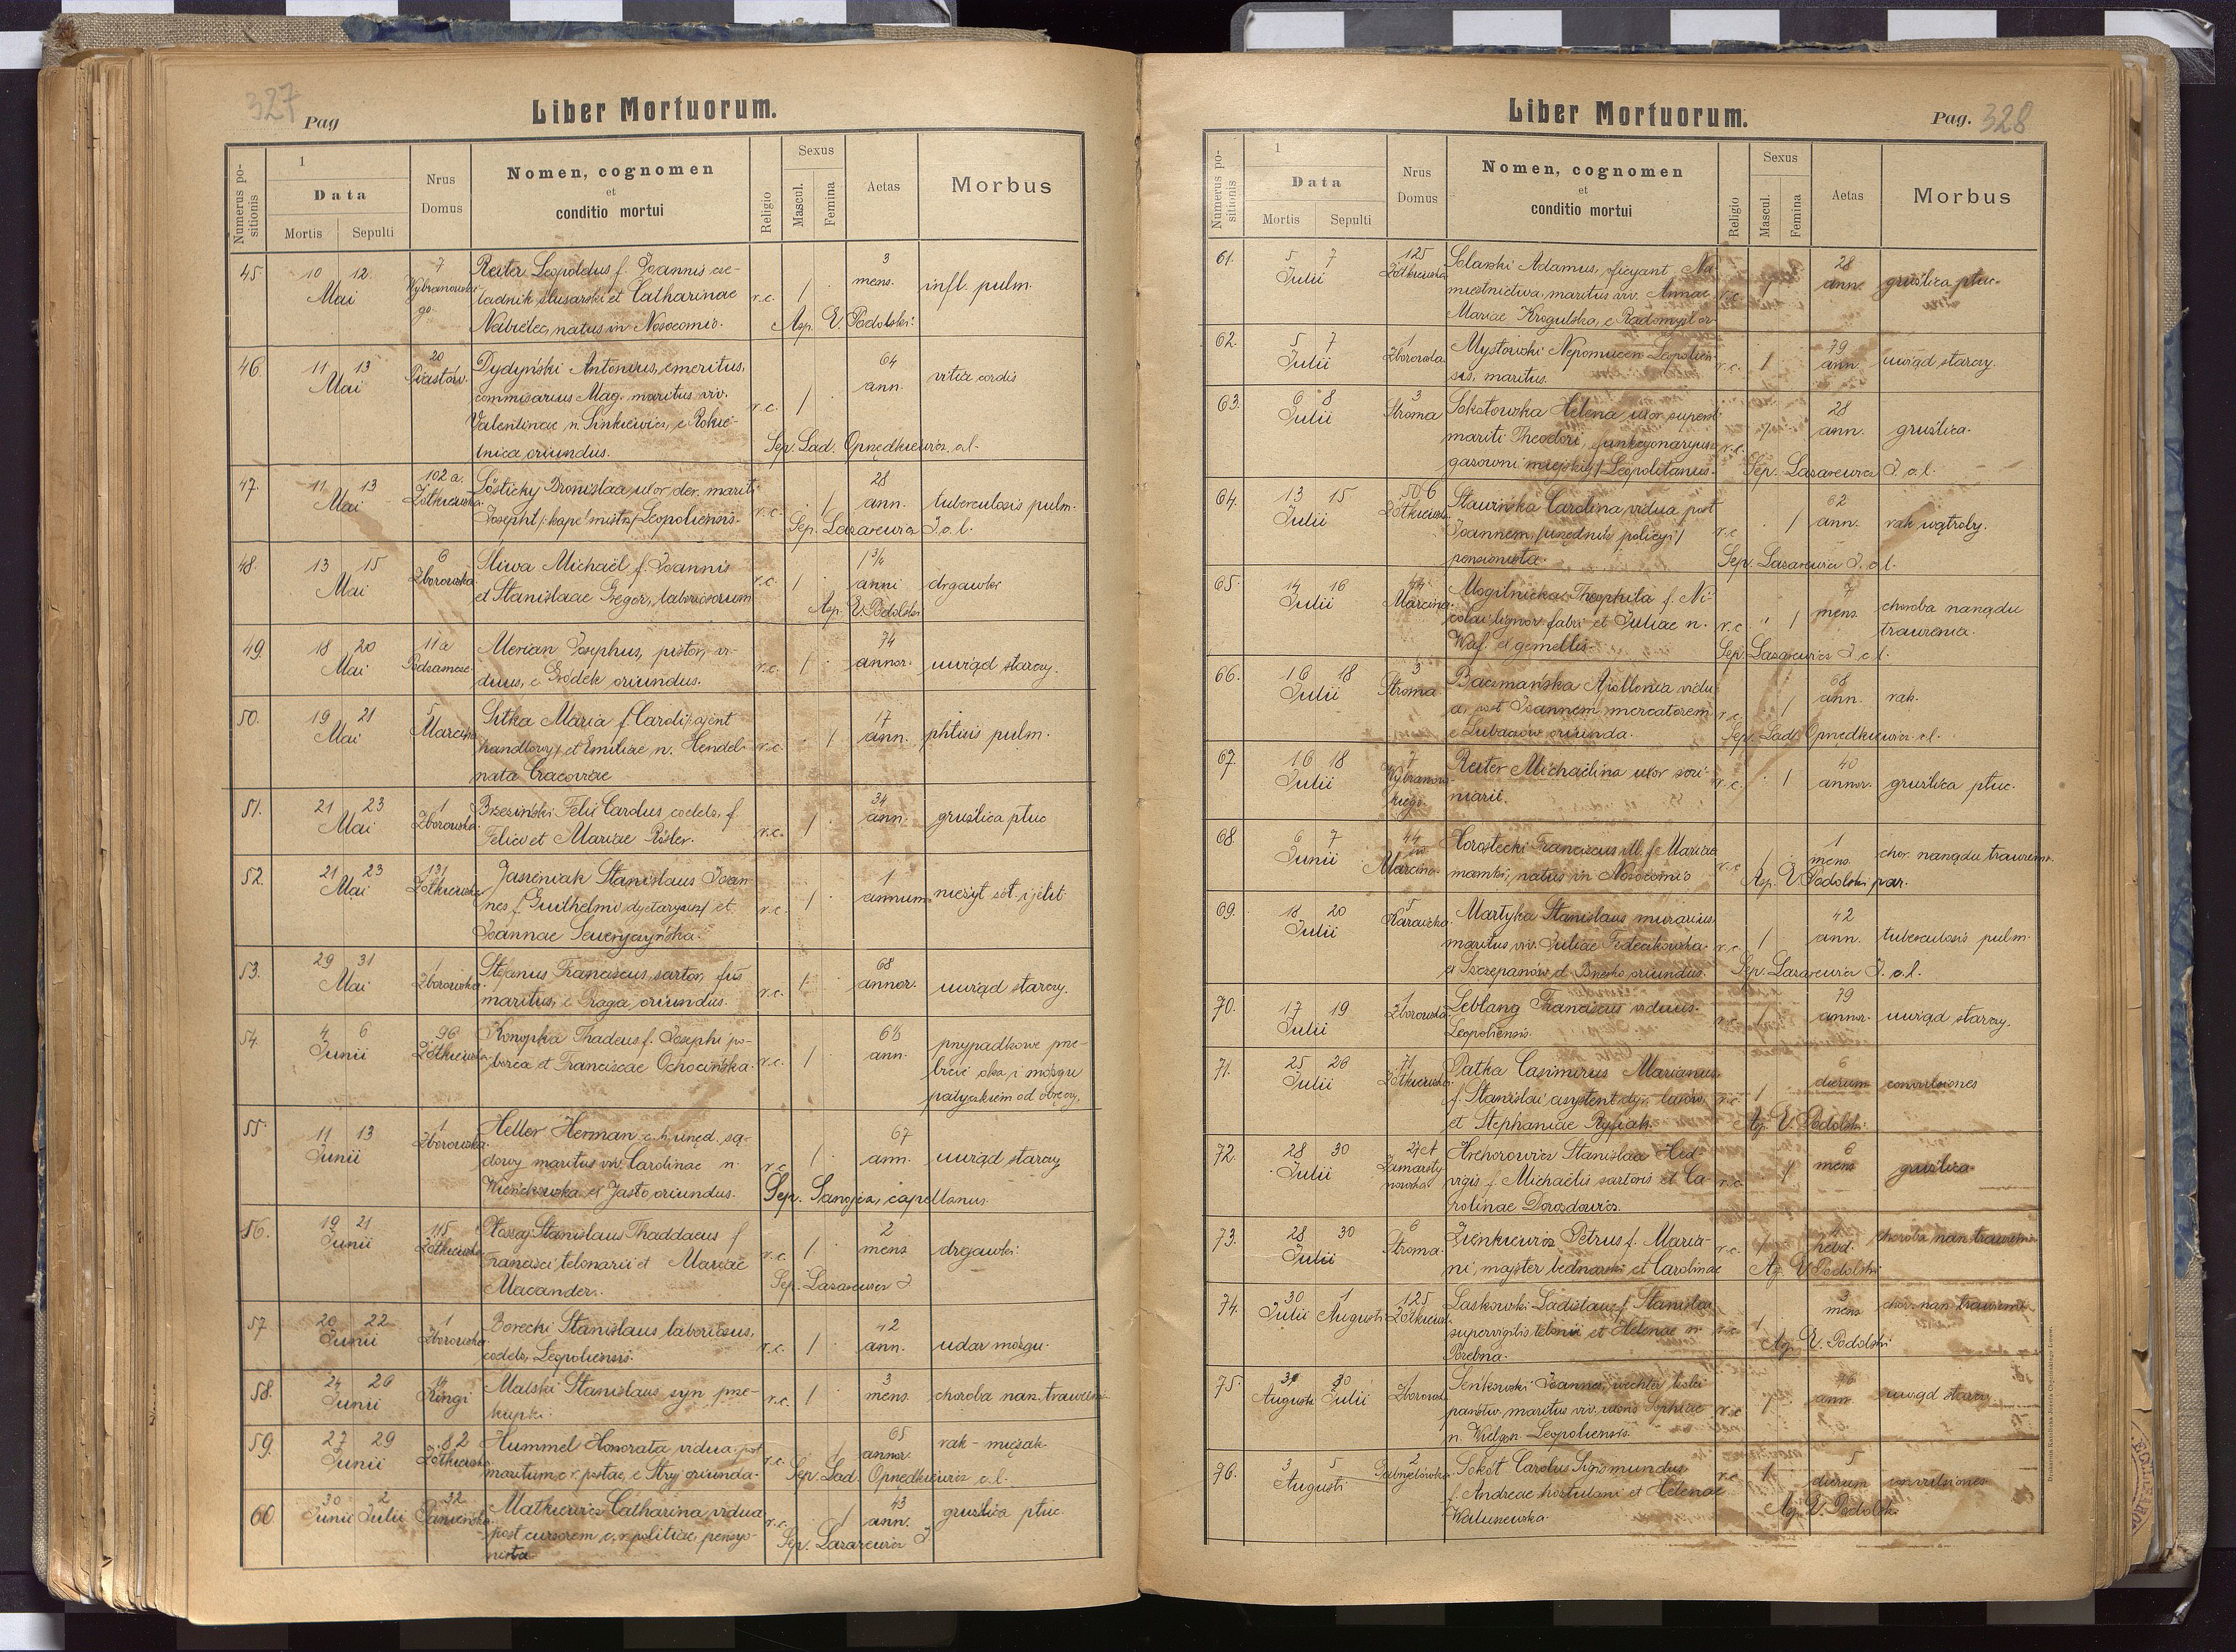 327 Pag
Liber Mortuorum.
Numerus positionis
1
Data
Mortis Sepulti
Nrus Domus
Nomen, cognomen
et
conditio mortui
Religio
Sexus
Mascul. Femina
Aetas
Morbus
45. 10 12. Mai 7 Wybranowskiego
Reiter Leopoldus f. Joannis cze-
ladnik ślusarski et Catharinae r.c. 1 3 mens. infl. pulm.
natus in Nosocomio. Asp. V. Podolski
46. 11 13 Mai 20 Piastów.
Dydyński Antonius, emeritus,
commisarius Mag. maritus viv. r.c. 1 64 ann. vitia cordis
Valentinae n. Sinkiewicz, e Rokie-
tnica oriundus. Sep. Lad. Opnędkiewicz. o.l.
47. 11 13 Mai 102 a. Żółkiewska.
Bronislaa, uxor der. mariti
Josephi /:kapelmistrz/ Leopoliensis. r.c. 1 28 ann. tuberculosis pulm.
Sep. Lazarewicz J. o. l.
48. 13 15 Mai 6 Zborowska
Śliwa Michaël f. Joannis
et Stanislaae Gregor, laboriosorum r.c. 1 1 3/4 anni drgawki
Asp. V. Podolski
49. 18 20 Mai 11 a Podzamcze
Merian Josephus, pistor, vi-
duus, e Gródek oriundus. r.c. 1 74 annor. uwiąd starczy.
50. 19 21 Mai 5 Marcina
Sitka Maria f. Caroli /:ajent
handlowy/ et Emiliae n. Hendel r.c. 1 17 ann. phtisis pulm.
nata Cracoviae
51. 21 23 Mai 1 Zborowska
Brzeziński Felix Carolus coelebs, f.
Felicis et Mariae Rösler. r.c. 1 34 ann. gruźlica płuc
52. 21 23 Mai 131 Żółkiewska
Jasieniak Stanislaus Joan-
nes f. Guilhelmi dyetaryusz/ et r.c. 1 1 annum nieżyt żoł. i jelit
Joannae Seweryczyńska.
53. 29 31 Mai 1 Zborowska.
Stefanus Franciscus, sartor, fuit
maritus, e Praga oriundus. r.c. 1 68 annor. uwiąd starczy.
54. 4 6 Junii 96 Żółkiewska
Konopka Thadeus f. Josephi po-
borca et Franciscae Ochocińska. r.c. 1 66 ann. przypadkowe prze-
bicie oka i mózgu
patyczkiem od obręczy.
55. 11 13 Junii 1 Zborowska.
Heller Herman c. k. urzęd. są-
dowy maritus viv. Carolinae n. r.c. 1 67 ann. uwiąd starczy
Wieńckowska et Jasło oriundus. Sep. Sanojca, capellanus.
56. 19 21 Junii 115 Żółkiewska
Stanislaus Thaddaeus f
Francisci telonarii et Mariae r.c. 1 2 mens drgawki
Macander. Sep. Lazarewicz J
57 20 22 Junii 1 Zborowska
Borecki Stanislaus laboriosus,
coelebs, Leopoliensis. r.c. 1 42 ann. udar mózgu.
58. 24 26 Junii Kingi
Malski Stanislaus syn prze-
kupki. r.c. 1 3 mens. choroba narz. trawienia
59. 27 29 Junii 82 Żółkiewska
Hummel Honorata vidua post
maritum c. r. postae, e Stryj oriunda. r.c. 1 65 annor. rak - mięsak
Sep. Lad. Opnędkiewicz o.l.
60 30 2 Junii Julii 32 Panieńska
Matkiewicz Catharina vidua
post cursorem c. r. politiae, pensyo- r.c. 1 43 ann. gruźlica płuc
nista Sep. Lazarewicz J.
Liber Mortuorum. Pag. 328
Numerus positionis
1
Data
Mortis Sepulti
Nrus Domus
Nomen, cognomen
et
conditio mortui
Religio
Sexus
Mascul. Femina
Aetas
Morbus
61. 5 7 Julii 125 Żółkiewska
Adamus, oficyant Na-
miestnictwa, maritus viv. Annae r.c. 1 28 ann. gruźlica płuc.
Mariae Krogulska, e Radomyśl or.
62. 5 7 Julii 1 Zborowska.
Mysłowski Nepomucen Leopolien-
sis, maritus. r.c. 1 79 ann. uwiąd starczy.
63. 6 8 Julii 3 Stroma
Sokołowska Helena uxor superst.
mariti Theodori, funkcyonaryusz r.c. 1 28 ann. gruźlica.
gazowni miejskiej/ Leopolitanus. Sep. Lazarewicz J. o. l.
64. 13 15 Julii 50 6 Żółkiewsk.
Stawińska Carolina vidua post
Joannem, /urzędnik policyi/ r.c. 1 62 ann. rak wątroby.
pensionista. Sep. Lazarewicz J. o. l.
65. 14 16 Julii 44 Marcina.
Mogilnicka Theophila f. Ni-
colai lignor. fabri et Juliae n. r.c. 1 mens. choroba narządu
Waf. e gemellis. trawienia.
Sep. Lazarewicz J. o l.
66. 16 18 Julii 3 Stroma.
Baczmańska Apollonia vidu-
a post Joannem mercatorem r.c. 1 68 ann. rak.
e Lubaczów oriunda. Sep. Lad. Opnędkiewicz o.l.
67. 16 18 Julii 7 Wybranowskiego
Reiter Michaëlina uxor scri-
niarii. r.c. 1 40 annor. gruźlica płuc.
68. 6 7 Junii 44 św Marcina.
Horostecki Franciscus ill. f. Mariae
mamki, natus in Nosocomio r.c. 1 1 mens. chor. narządu trawienia.
Asp. V. Podolski par.
69. 18 20 Julii 5
Martyka Stanislaus murarius,
maritus viv. Juliae r.c. 1 42 ann. tuberculosis pulm.
e Szczepanów d. Brzesko oriundus. Sep. Lazarewicz J. o. l.
70. 17 19 Julii 1 Zborowska
Leblang Franciscus viduus.
Leopoliensis. r.c. 1 79 annor. uwiąd starczy.
71. 25 26 Julii 71 Żółkiewska
Patka Casimirus Marianus
f. Stanislai asystent dyr. lasów r.c. 1 6 dierum convulsiones
et Stephaniae Rysiak. Asp. V. Podolski.
72. 28 30 Julii Zamarstynowska
Hrehorowicz Stanislaa Hed-
vigis f. Michaëlis sartoris et Ca- r.c. 1 6 mens gruźlica
rolinae Dorozdowicz.
73. 28 30 Julii 6 Stroma.
Zienkiewicz Petrus f. Maria-
ni, majster bednarski et Carolinae r.c. 1 choroba narz. trawienia
Asp. V. Podolski
74. 30 1 Julii Augusti 125 Żółkiewsk.
Laskowski Ladislaus f. Stanislai
supervigilis telonii et Helenae n. r.c. 1 3 mens chor. narz. trawienia
Asp. V. Podolski
75. 30 Augusti Julii 1 Zborowsk.
Senkowski Joannes, wechter kolei
państw. maritus viv. uxoris Sophiae r.c. 1 76 ann. uwiąd starczy
n. Leopoliensis.
76. 3 5 Augusti 2
Sokół Carolus Sigismundus
f. Andreae hortulani et Helenae r.c. 1 5 dierum convulsiones
Waluszewska. Asp. V. Podolski.
Drukarnia Katolicka Józefa Chęcińskiego Lwów.